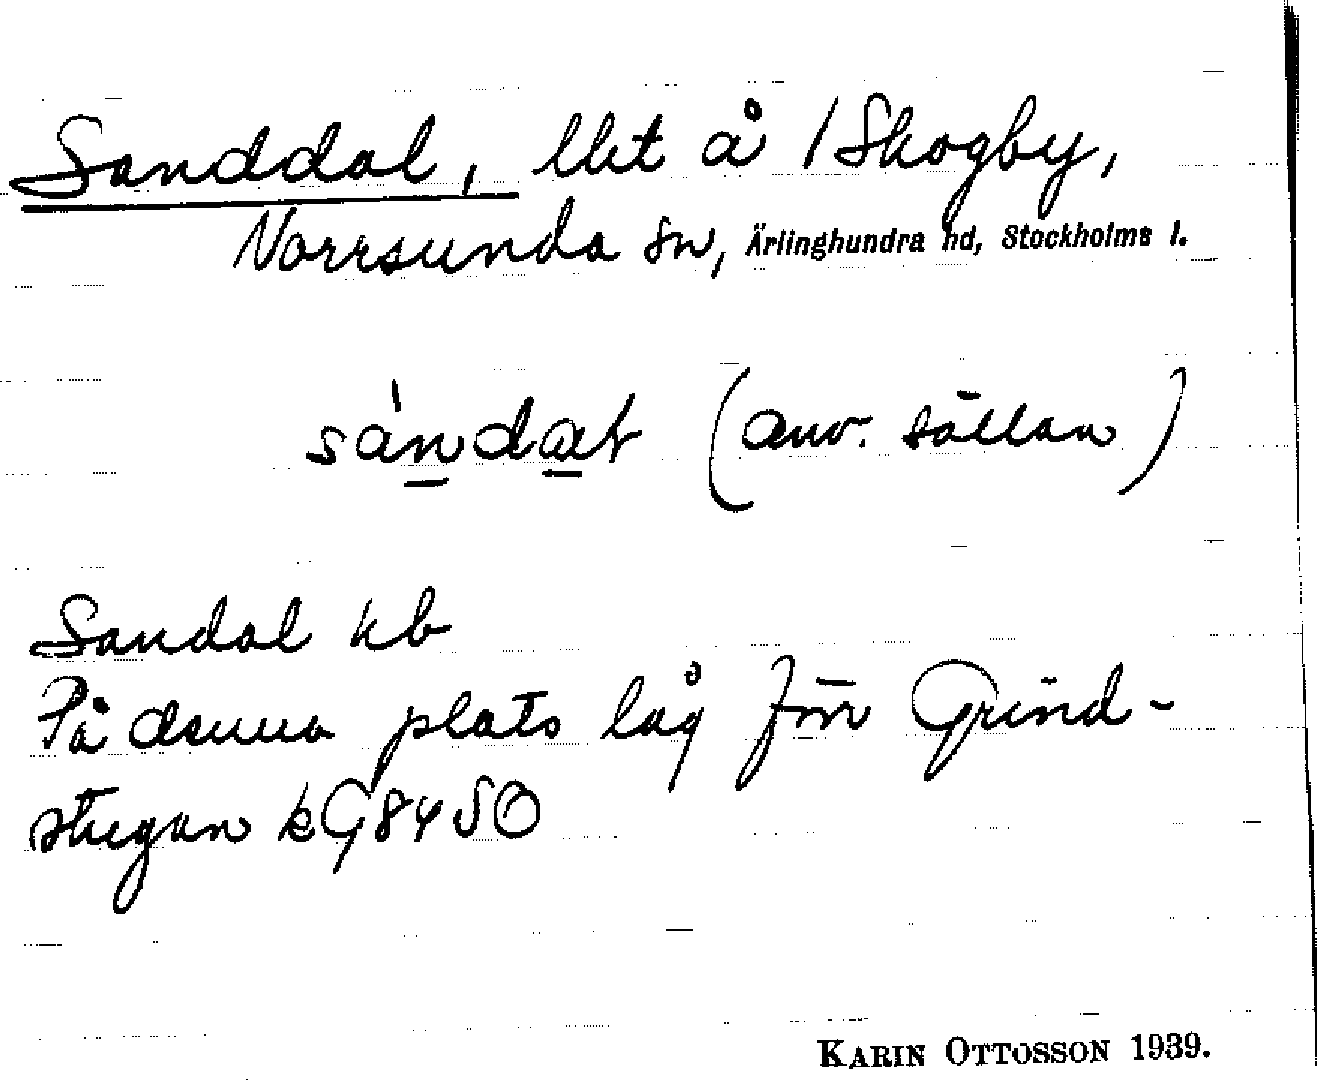 Sanddal, llet å 1 Skogby,
Norrsunda sn, Ärlinghundra hd, Stockholms l.
sàndat (anv. sällan)
Sandal kb
På denna plats låg förr Grind-
stugan kG84 SO
KARIN OTTOSSON 1939.